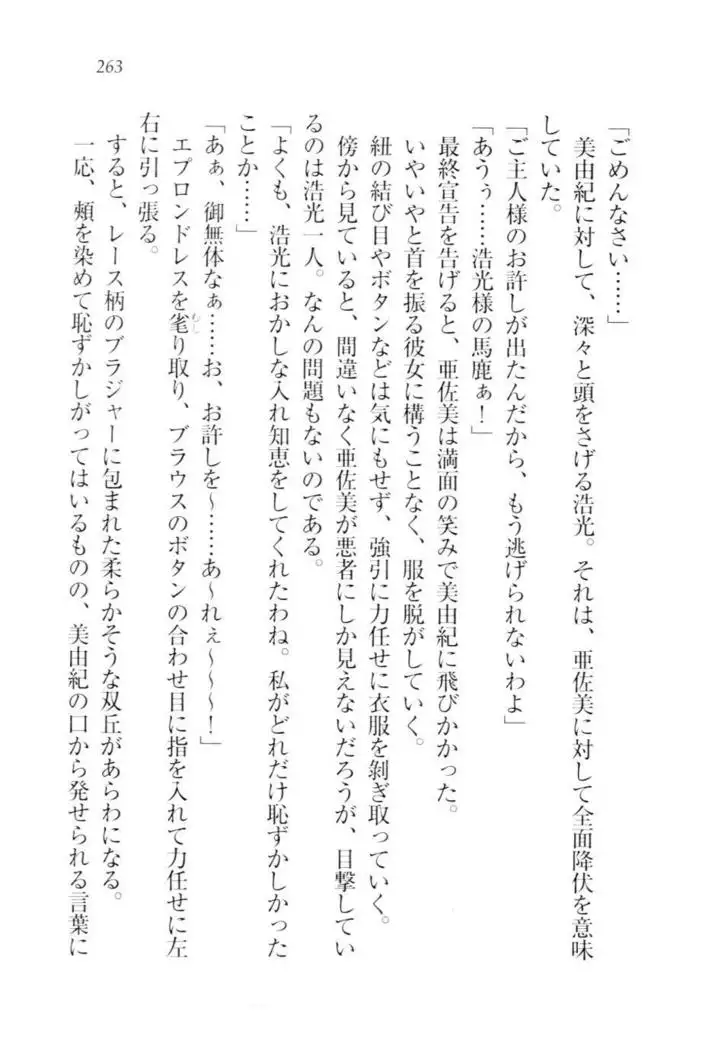 263
「ごめんなさい……」
　美由紀に対して、深々と頭をさげる浩光。それは、亜佐美に対して全面降伏を意味
していた。
「ご主人様のお許しが出たんだから、もう逃げられないわよ」
「あうぅ……浩光様の馬鹿ぁ！」
　最終宣告を告げると、亜佐美は満面の笑みで美由紀に飛びかかった。
　いやいやと首を振る彼女に構うことなく、服を脱がしていく。
　紐の結び目やボタンなどは気にもせず、強引に力任せに衣服を剥ぎ取っていく。
　傍から見ていると、間違いなく亜佐美が悪者にしか見えないだろうが、目撃してい
るのは浩光一人。なんの問題もないのである。
「よくも、浩光におかしな入れ知恵をしてくれたわね。私がどれだけ恥ずかしかった
ことか……」
「あぁ、御無体なぁ……お、お許しを～……あ～れぇ～～～！」
　エプロンドレスを毟り取り、ブラウスのボタンの合わせ目に指を入れて力任せに左
むし
右に引っ張る。
　すると、レース柄のブラジャーに包まれた柔らかそうな双丘があらわになる。
　一応、頬を染めて恥ずかしがってはいるものの、美由紀の口から発せられる言葉に